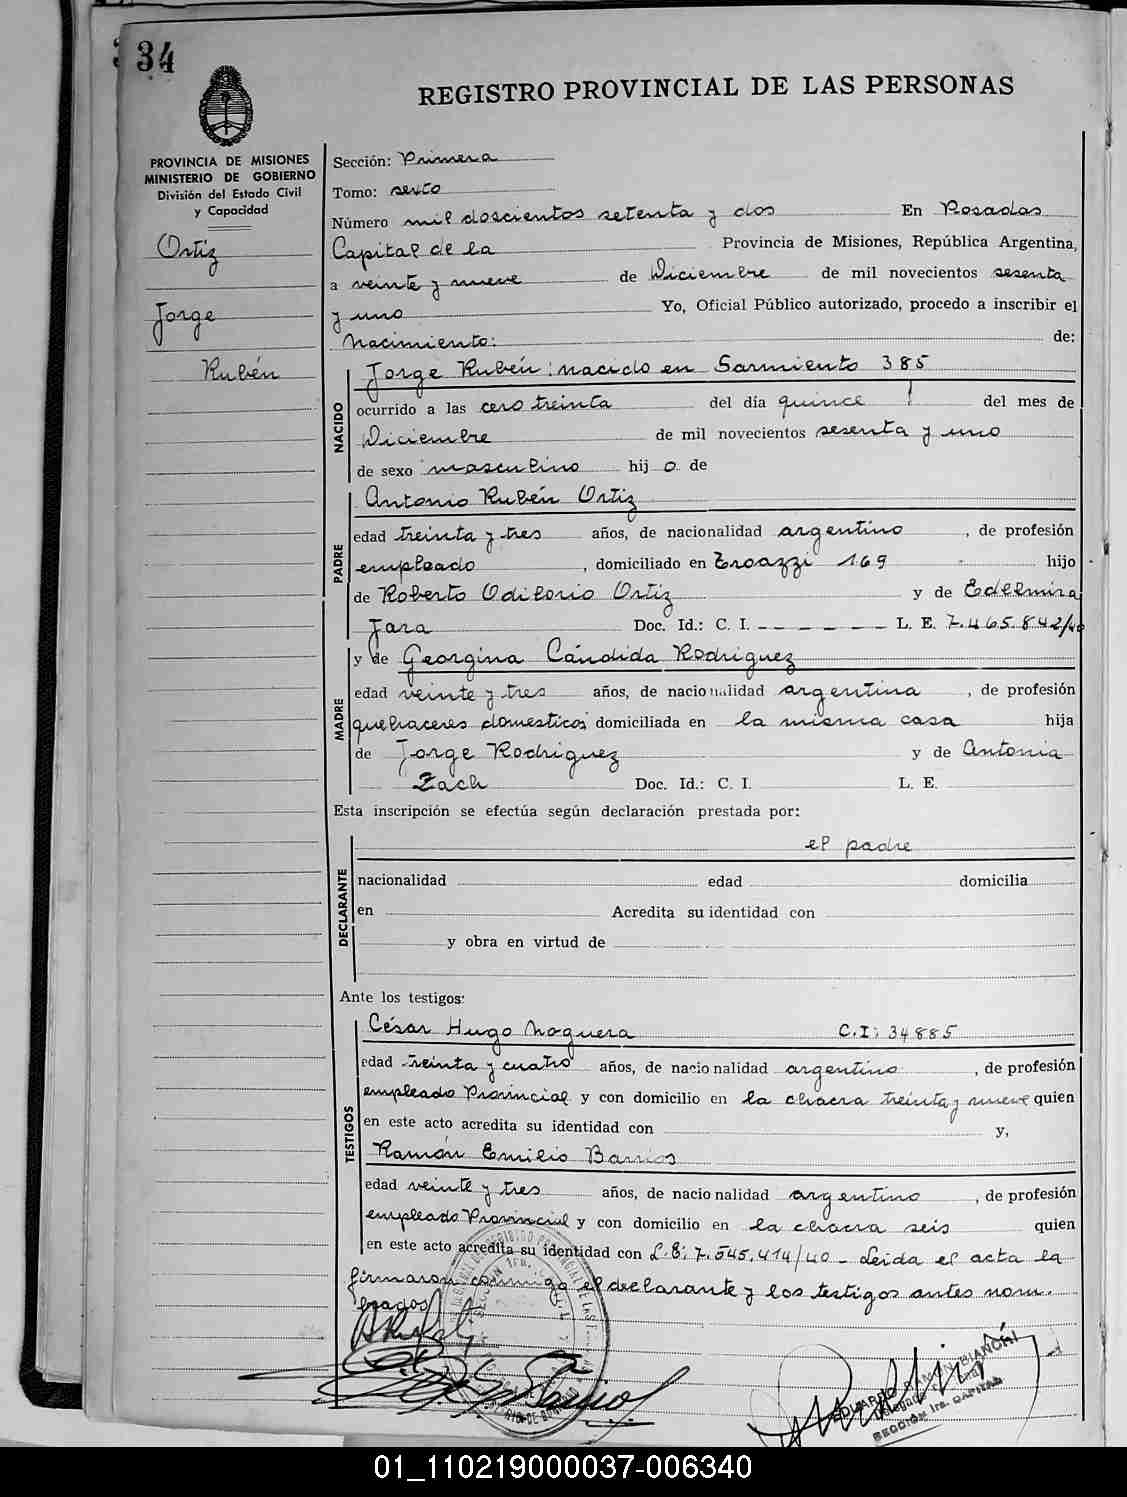 34
REGISTRO PROVINCIAL DE LAS PERSONAS
PROVINCIA DE MISIONES
MINISTERIO DE GOBIERNO
División del Estado Civil
y Capacidad
Ortiz
Jorge
Rubén
Sección: Primera
Tomo: sexto
Número mil doscientos setenta y dos En Posadas
Capital de la Provincia de Misiones, República Argentina,
a veinte y nueve de Diciembre de mil novecientos sesenta
y uno Yo, Oficial Público autorizado, procedo a inscribir el
Nacimiento: de:
NACIDO
Jorge Rubén: nacido en Sarmiento 385
ocurrido a las cero treinta del día quince del mes de
Diciembre de mil novecientos sesenta y uno
de sexo masculino hij o de
PADRE
Antonio Rubén Ortiz
edad treinta y tres años, de nacionalidad argentino, de profesión
empleado, domiciliado en 169 hijo
de Roberto Odilorio Ortiz y de Edelmira
Jara Doc. Id.: C. I. – – – – – – L. E. 7.465.842/40
MADRE
y de Georgina Cándida Rodriguez
edad veinte y tres años, de nacionalidad argentina, de profesión
quehaceres domesticos domiciliada en la misma casa hija
de Jorge Rodriguez y de Antonia
Zach Doc. Id.: C. I. L. E.
Esta inscripción se efectúa según declaración prestada por:
DECLARANTE
el padre
nacionalidad edad domicilia
en Acredita su identidad con
y obra en virtud de
Ante los testigos:
TESTIGOS
César Hugo Noguera C.I: 34885
edad treinta y cuatro años, de nacionalidad argentino, de profesión
empleado Provincial y con domicilio en la chacra treinta y nueve quien
en este acto acredita su identidad con y,
Ramón Emilio Barrios
edad veinte y tres años, de nacionalidad argentino, de profesión
empleado Provincial y con domicilio en la chacra seis quien
en este acto acredita su identidad con L.E: 7.545.414/40 - Leida el acta la
firmaron conmigo el declarante y los testigos antes nom.
brados
EDUARDO RAMON BIANCHI
SECCIÓN 1ra. CAPITAL
01_110219000037-006340